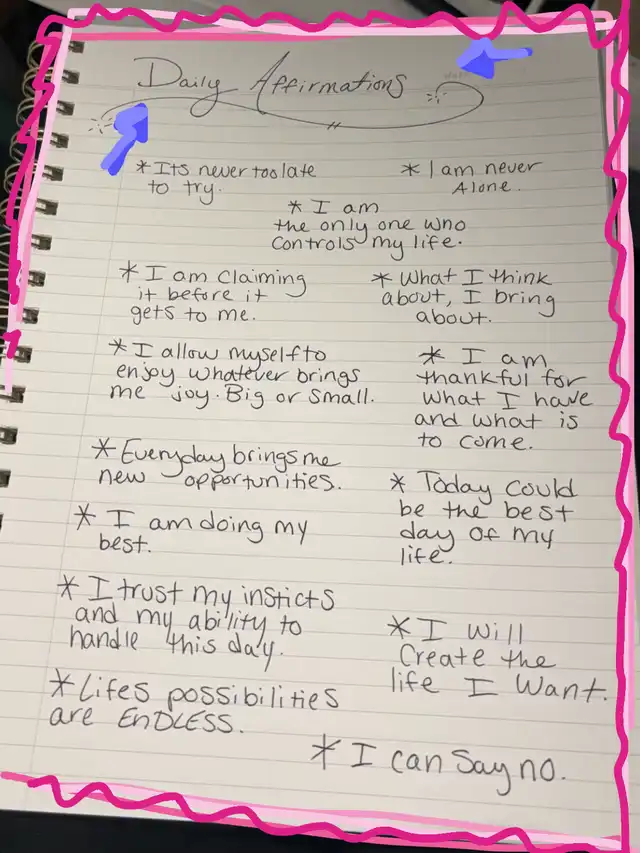 Daily Affirmations
* Its never too late
to try.
* I am never
Alone.
* I am
the only one who
controls my life.
* I am claiming
it before it
gets to me.
* What I think
about, I bring
about.
* I allow myself to
enjoy whatever brings
me joy. Big or Small.
* I am
thankful for
what I have
and what is
to come.
* Everyday brings me
new opportunities.
* Today could
be the best
day of my
life.
* I am doing my
best.
* I trust my insticts
and my ability to
handle this day.
* I Will
Create the
life I Want.
* Lifes possibilities
are ENDLESS.
* I can Say no.